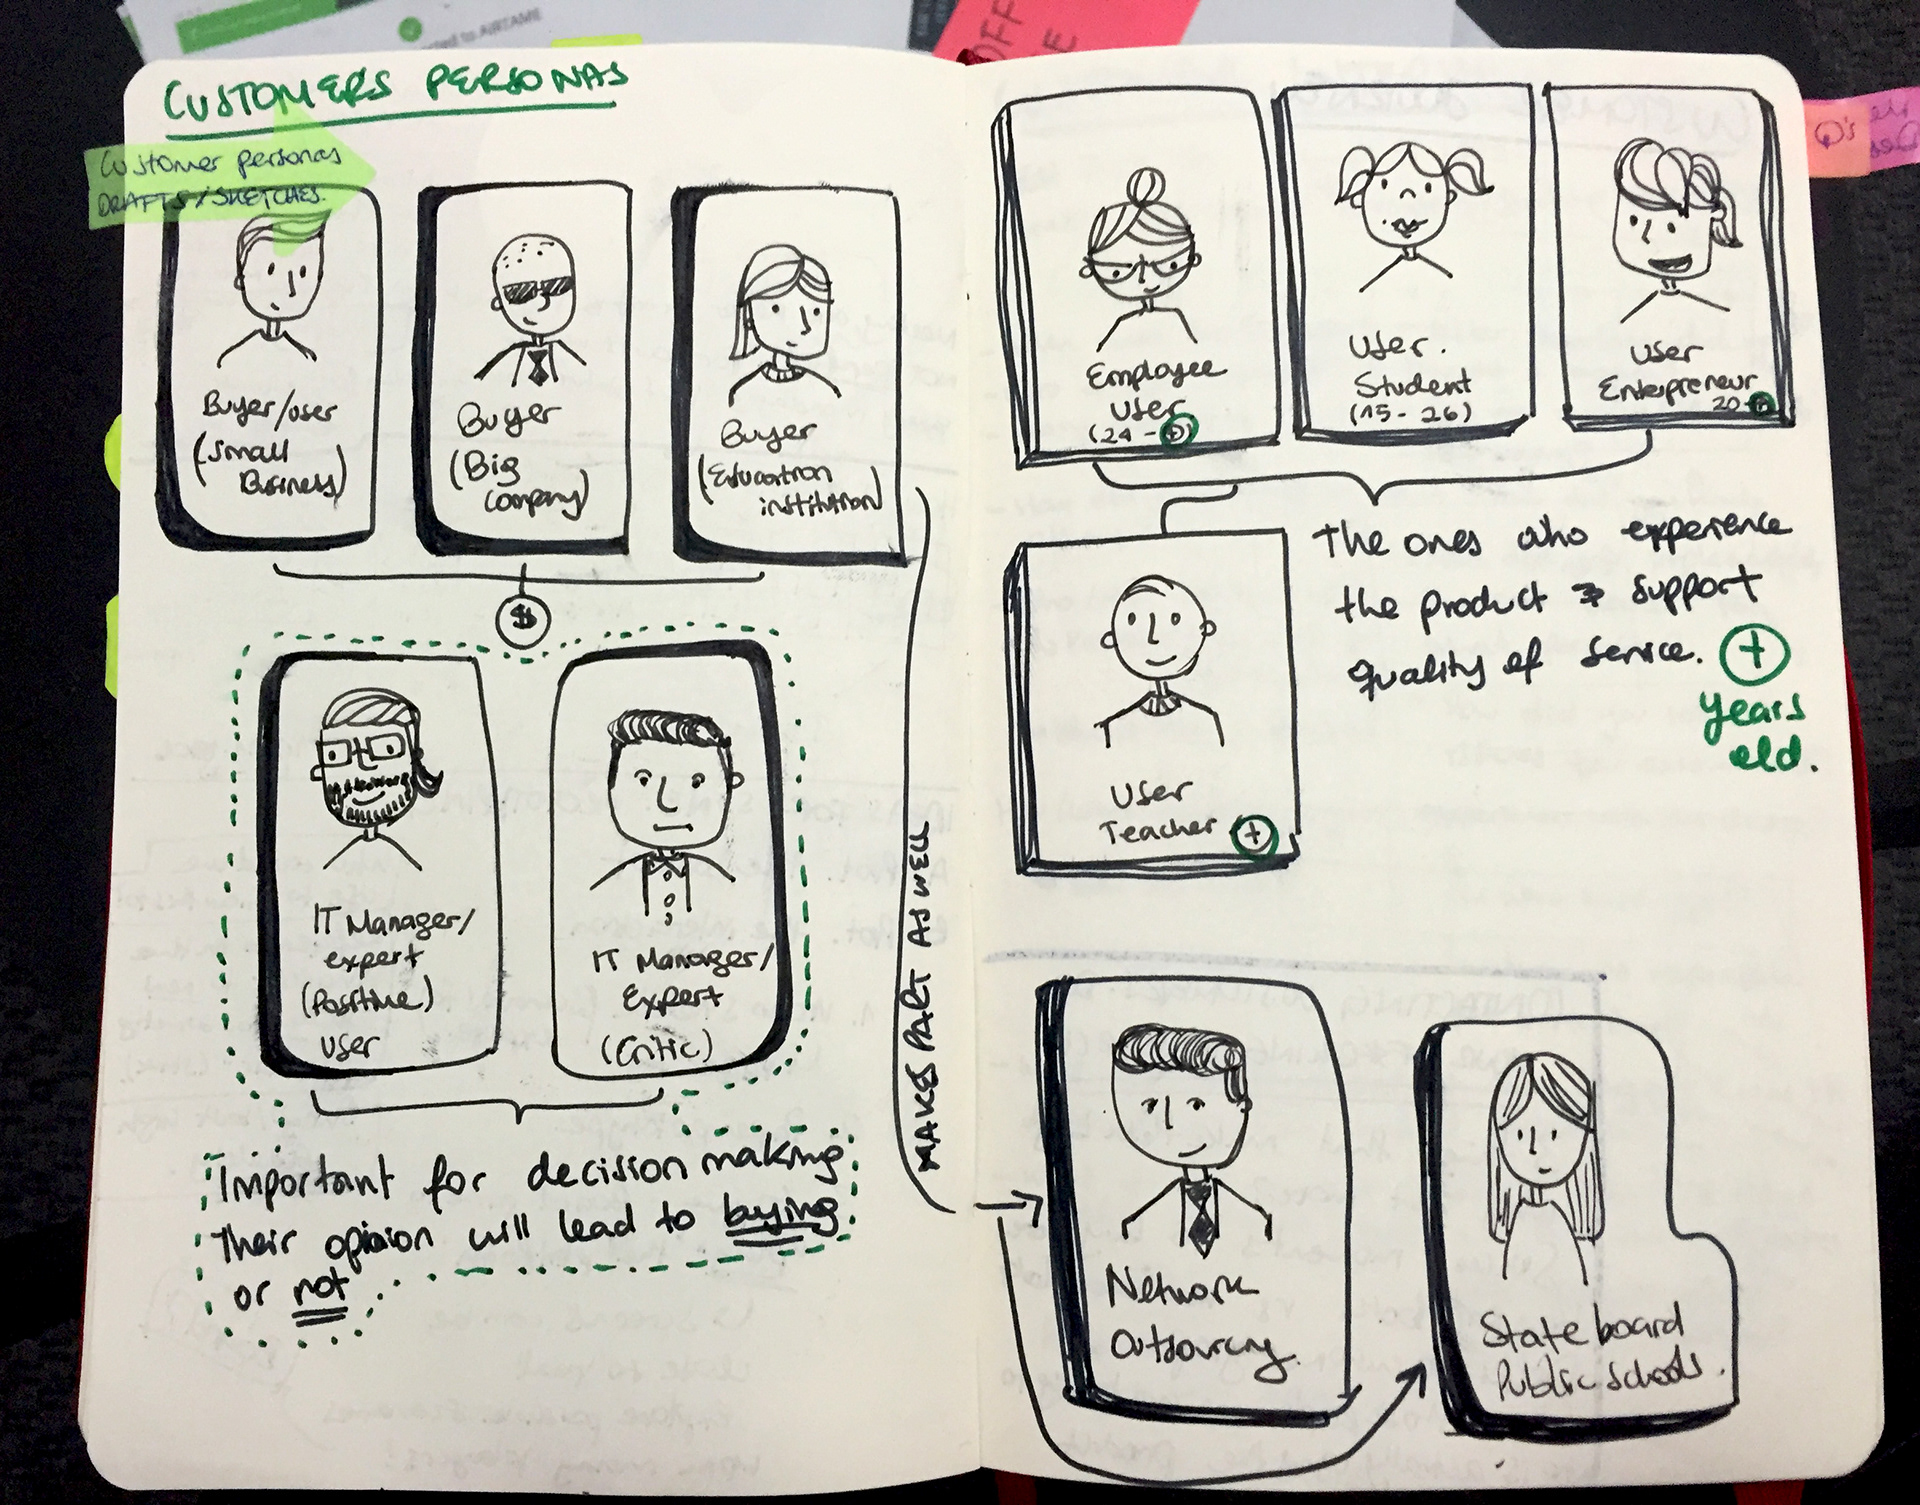 to AIRTAME
OFF
CUSTOMERS PERSONAS
Customer personas
DRAFTS/SKETCHES.
Buyer/user
(Small
Business)
Buyer
(Big
Company)
Buyer
(Education
institution)
$
IT Manager/
expert
(Positive)
user
IT Manager/
Expert
(Critic)
Important for decision making
Their opinion will lead to buying
or not
MAKES PART AS WELL
Employee
User
(24 - +)
User.
Student
(15 - 26)
User
Entrepreneur
20-+
The ones who experience
the product & support
quality of service. +
years
old.
User
Teacher +
Network
Outsourcing.
State board
Public schools.
Q's